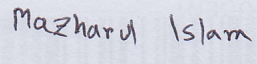 Mazharul Islam